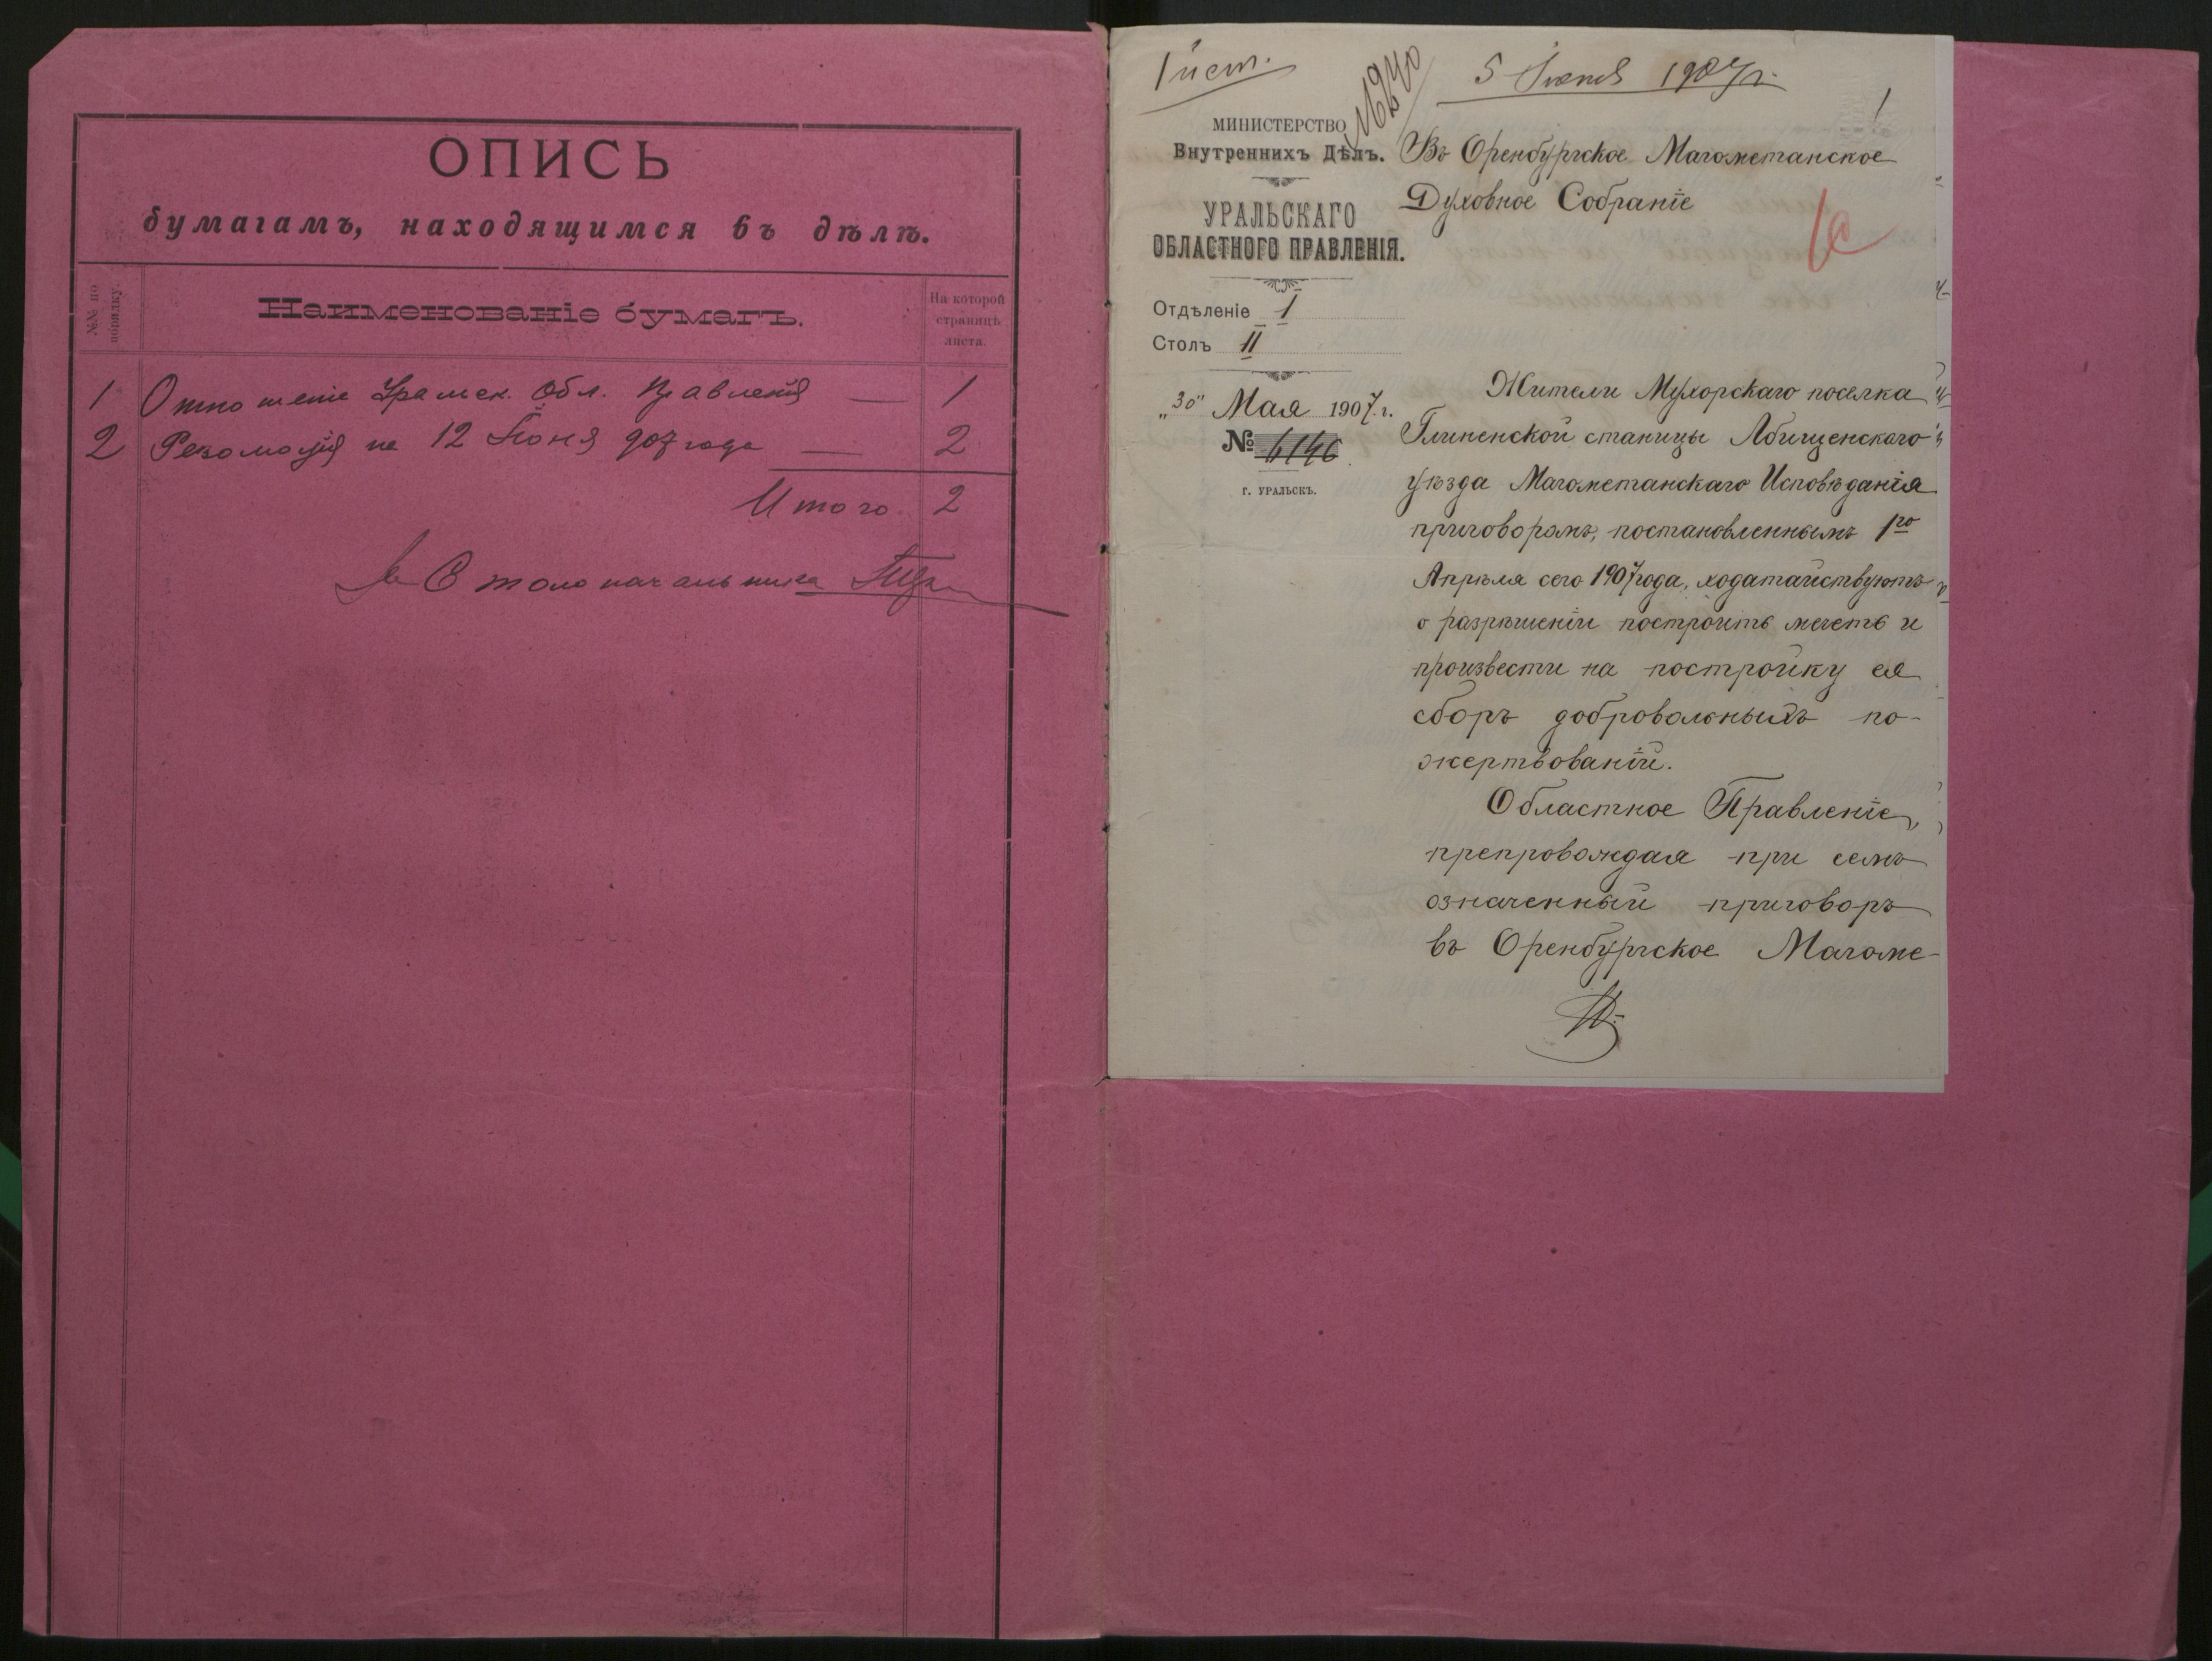 ОПИСЬ
бумагамъ, находящимся въ дѣлѣ.
№№ по порядку.
Наименованіе бумагъ.
На которой
страницѣ
листа.
1 Отношеніе Уральск. Обл. Правленія — 1
2 Резолюція на 12 Іюня 907 года — 2
Итого 2
Столоначальника
5 Іюня 1907 г.
1
МИНИСТЕРСТВО
Внутреннихъ Дѣлъ.
УРАЛЬСКАГО
ОБЛАСТНОГО ПРАВЛЕНІЯ.
Отдѣленіе I
Столъ II
„30" Мая 1907 г.
№ 6146
г. УРАЛЬСКЪ.
Въ Оренбургское Магометанское
Духовное Собраніе
Жители Мухорскаго поселка
Глиненской станицы Лбищенскаго
уѣзда Магометанскаго Исповѣданія
приговоромъ, постановленнымъ 1го
Апрѣля сего 1907 года, ходатайствуютъ
о разрѣшеніи построить мечеть и
произвести на постройку ея
сборъ добровольныхъ по-
жертвованій.
Областное Правленіе,
препровождая при семъ
означенный приговоръ
въ Оренбургское Магоме-